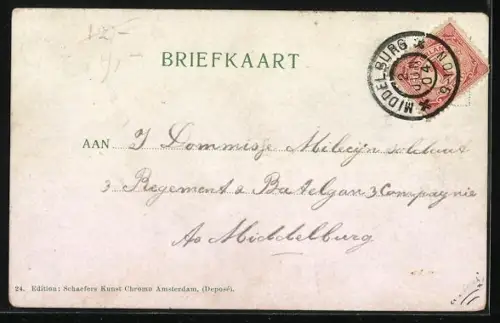 BRIEFKAART
MIDDELBURG
2 JUN 04
AAN J Dommisse Milicijn soldaat
3 Regement 2 Batelgon 3 Compaynie
Ao Middelburg
24. Edition: Schaefers Kunst Chromo Amsterdam, (Deposé).